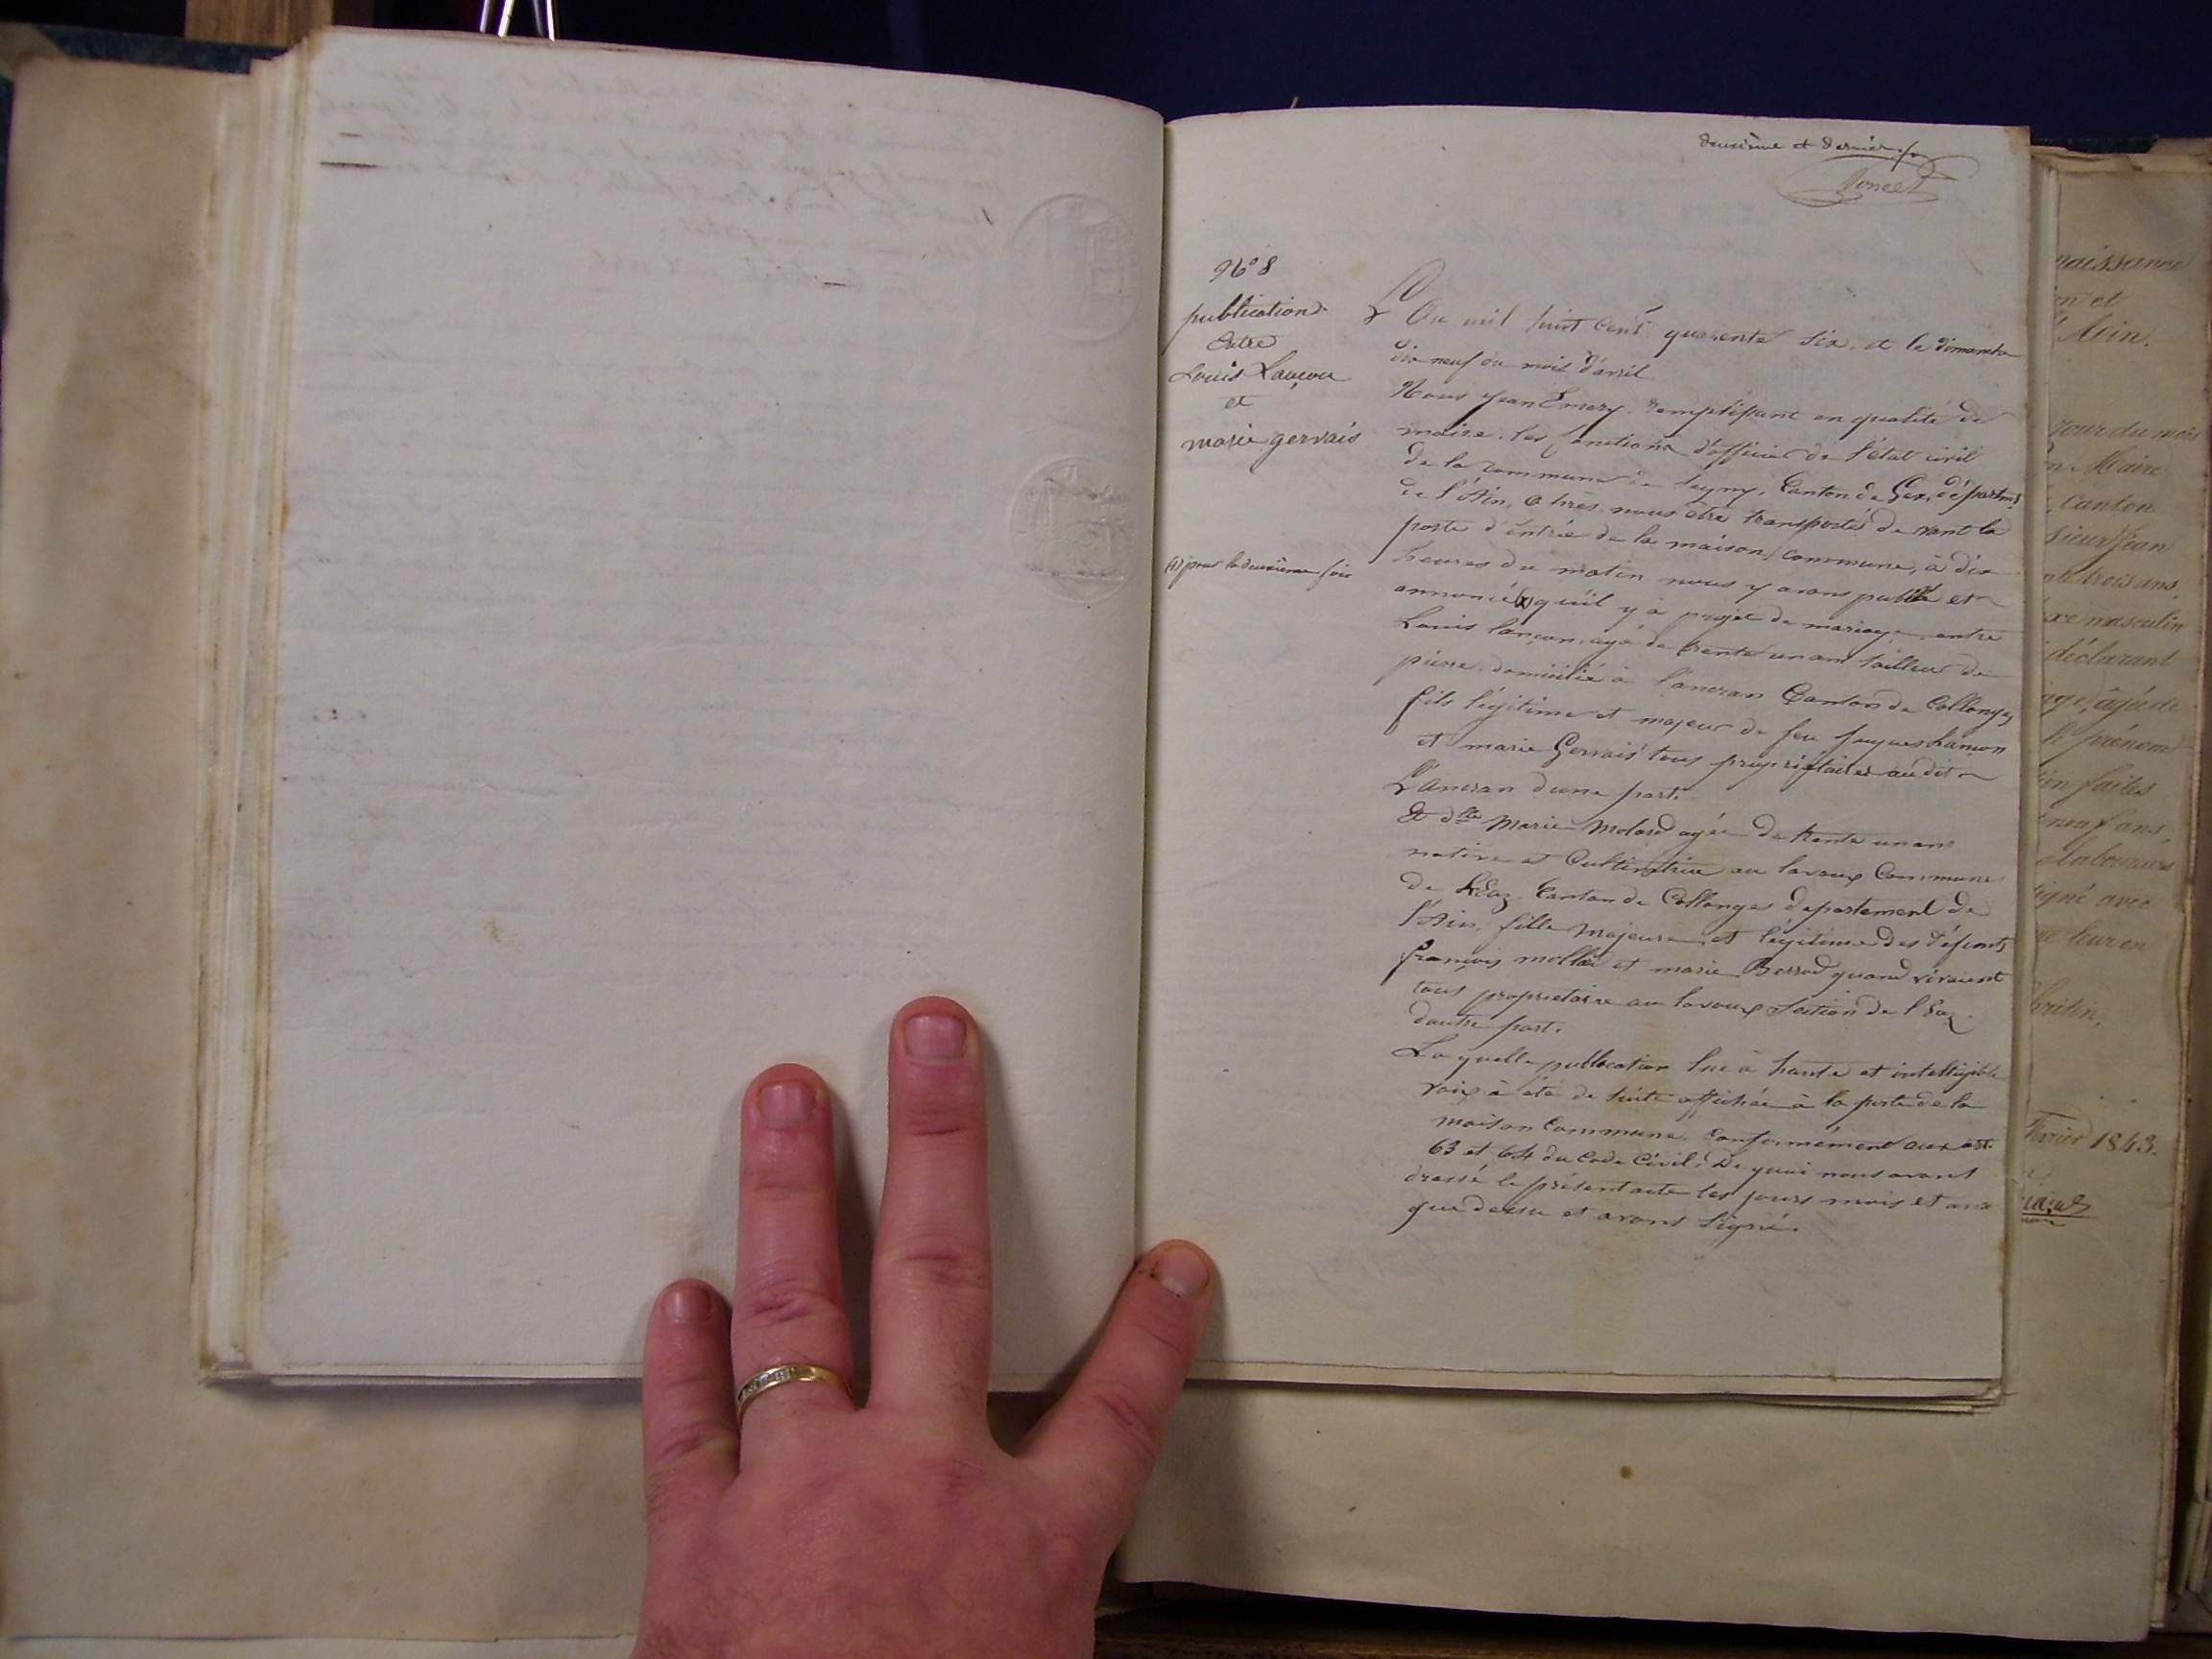 deuxième et dernier
Poncet
N° 8
publication
entre
Louis Lançon
et
marie gervais
(1) pour la deuxieme fois
L'An mil huit cent quarente six, et le dimanche
dix neuf du mois d'avril
Nous jean Emery remplissant en qualité de
maire, les fonctions d'officier de l'état civil
de la commune de Segny, Canton de Gex, départmt
de l'Ain, après nous être transporté devant la
porte d'entrée de la maison commune, à dix
heures du matin nous y avons publié et
annoncé (x) qu'il y à projet de mariage entre
Louis lançon, agé de trente un ans tailleur de
pierre, domicilié à lancran Canton de Collonges
fils légitime et majeur de feu jaques Lançon
et marie Gervais tous propriétaires audit
Lancran d'une part.
& dlle Marie Molard agée de trente un ans
native et Cultivatrice au lavoux Commune
de LEaz Canton de Collonges departement de
l'Ain, fille Majeure et légitime des défunts
françois mollard et marie Berrod quand vivaient
tous propriétaire au lavoux section de l'Eaz
dautre part.
La quelle publication lue à haute et intelligible
voix à été de suite affichée à la porte de la
maison Commune. Conformément aux art.
63 et 64 du Code Civil, De quoi nous avons
dressé le présent acte les jours mois et ans
que dessu et avons Signé.
naissance
en et
l'Ain.
jour du mois
Maire
canton
sieur Jean
trois ans,
sexe masculin
déclarant
âgé de
prénom
faites
neuf ans,
laboureurs
signé avec
leur en
Février 1843.